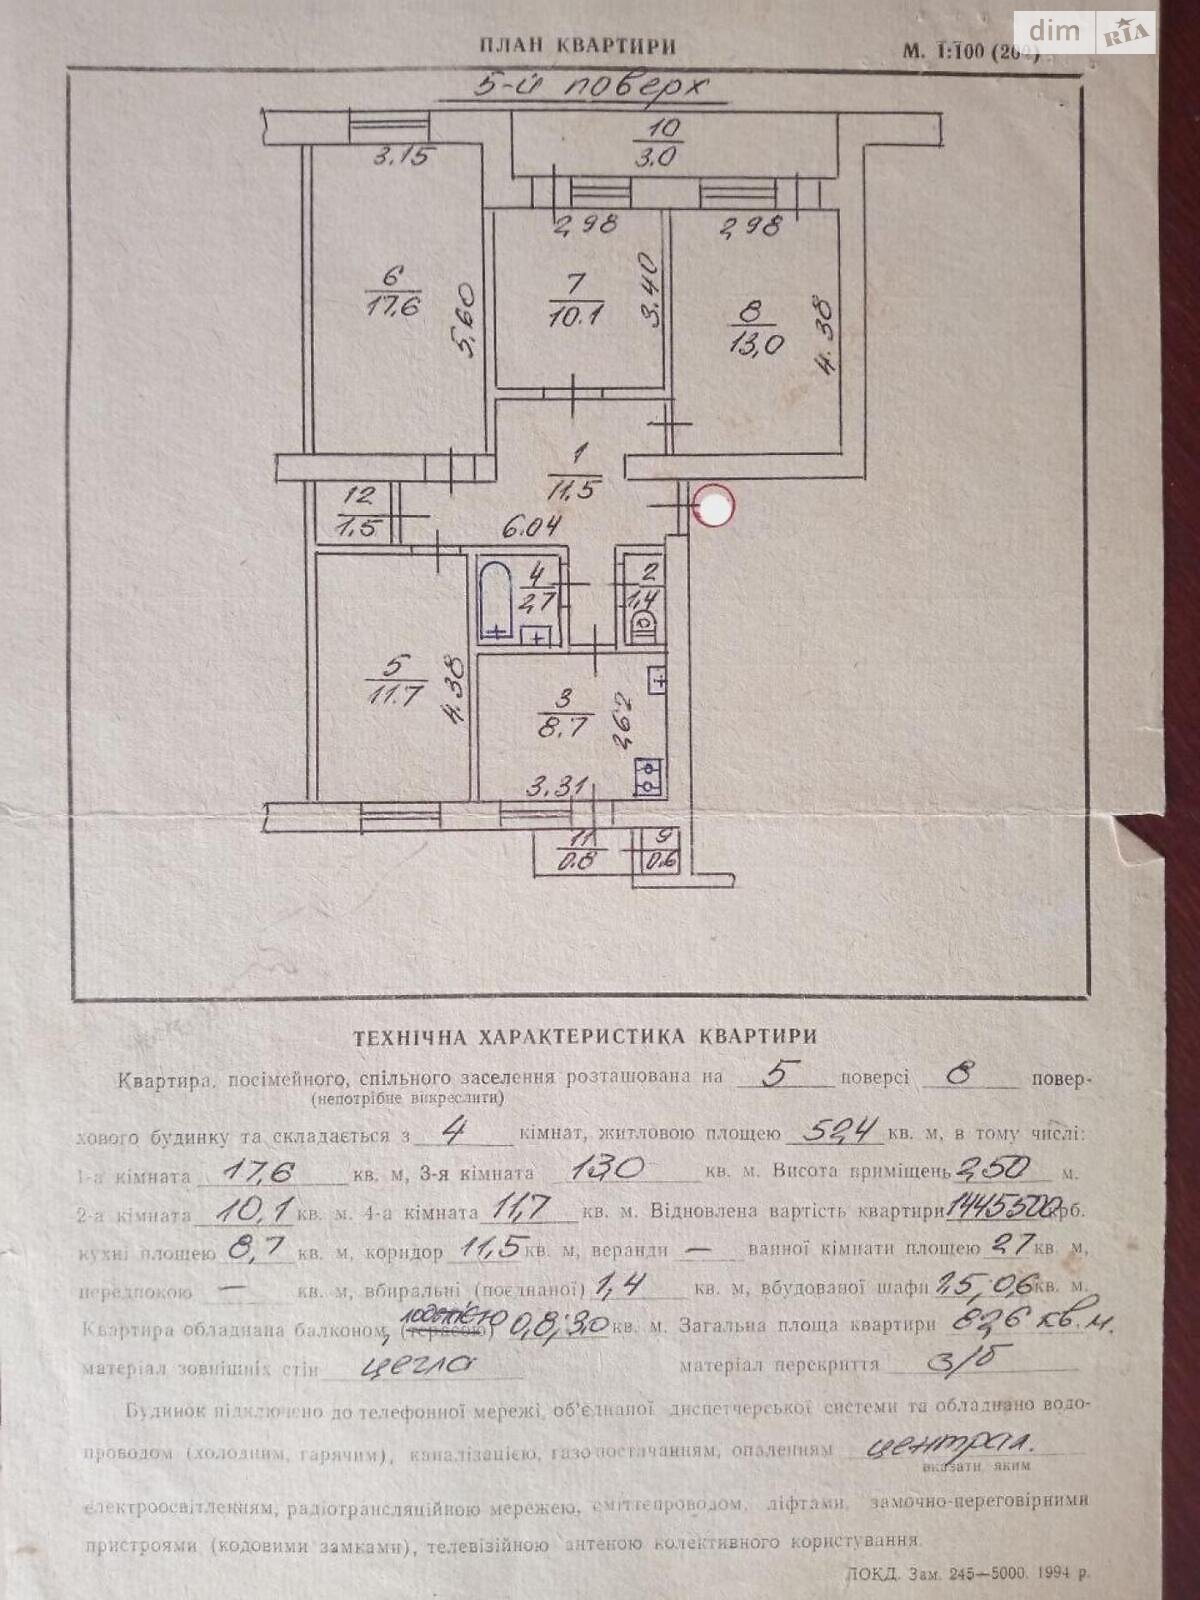 dim RIA
ПЛАН КВАРТИРИ
М. 1:100 (200)
5-й поверх
10
3.0
3.15
2,98
2,98
6
17.6
5.60
7
10.1
3.40
8
13,0
4.38
1
11.5
12
1.5
6.04
4
2,7
2
1,4
5
11.7
4.38
3
8.7
2,62
3.31
11
0.8
9
0.6
ТЕХНІЧНА ХАРАКТЕРИСТИКА КВАРТИРИ
Квартира, посімейного, спільного заселення розташована на 5 поверсі 8 повер-
(непотрібне викреслити)
хового будинку та складається з 4 кімнат, житловою площею 52,4 кв. м, в тому числі:
1-а кімната 17,6 кв. м, 3-я кімната 13,0 кв. м. Висота приміщень 2,50 м.
2-а кімната 10,1 кв. м. 4-а кімната 11,7 кв. м. Відновлена вартість квартири 1445500 крб.
кухні площею 8,7 кв. м, коридор 11,5 кв. м, веранди — ванної кімнати площею 2,7 кв. м,
передпокою — кв. м, вбиральні (поєднаної) 1,4 кв. м, вбудованої шафи 1,5; 0,6 кв. м.
Квартира обладнана балконом, (терасою) лоджією 0,8; 3,0 кв. м. Загальна площа квартири 82,6 кв. м.
матеріал зовнішніх стін цегла матеріал перекриття з/б
Будинок підключено до телефонної мережі, об'єднаної диспетчерської системи та обладнано водо-
проводом (холодним, гарячим), каналізацією, газопостачанням, опаленням централ.
вказати яким
електроосвітленням, радіотрансляційною мережею, сміттєпроводом, ліфтами, замочно-переговірними
пристроями (кодовими замками), телевізійною антеною колективного користування.
ЛОКД. Зам. 245—5000. 1994 р.